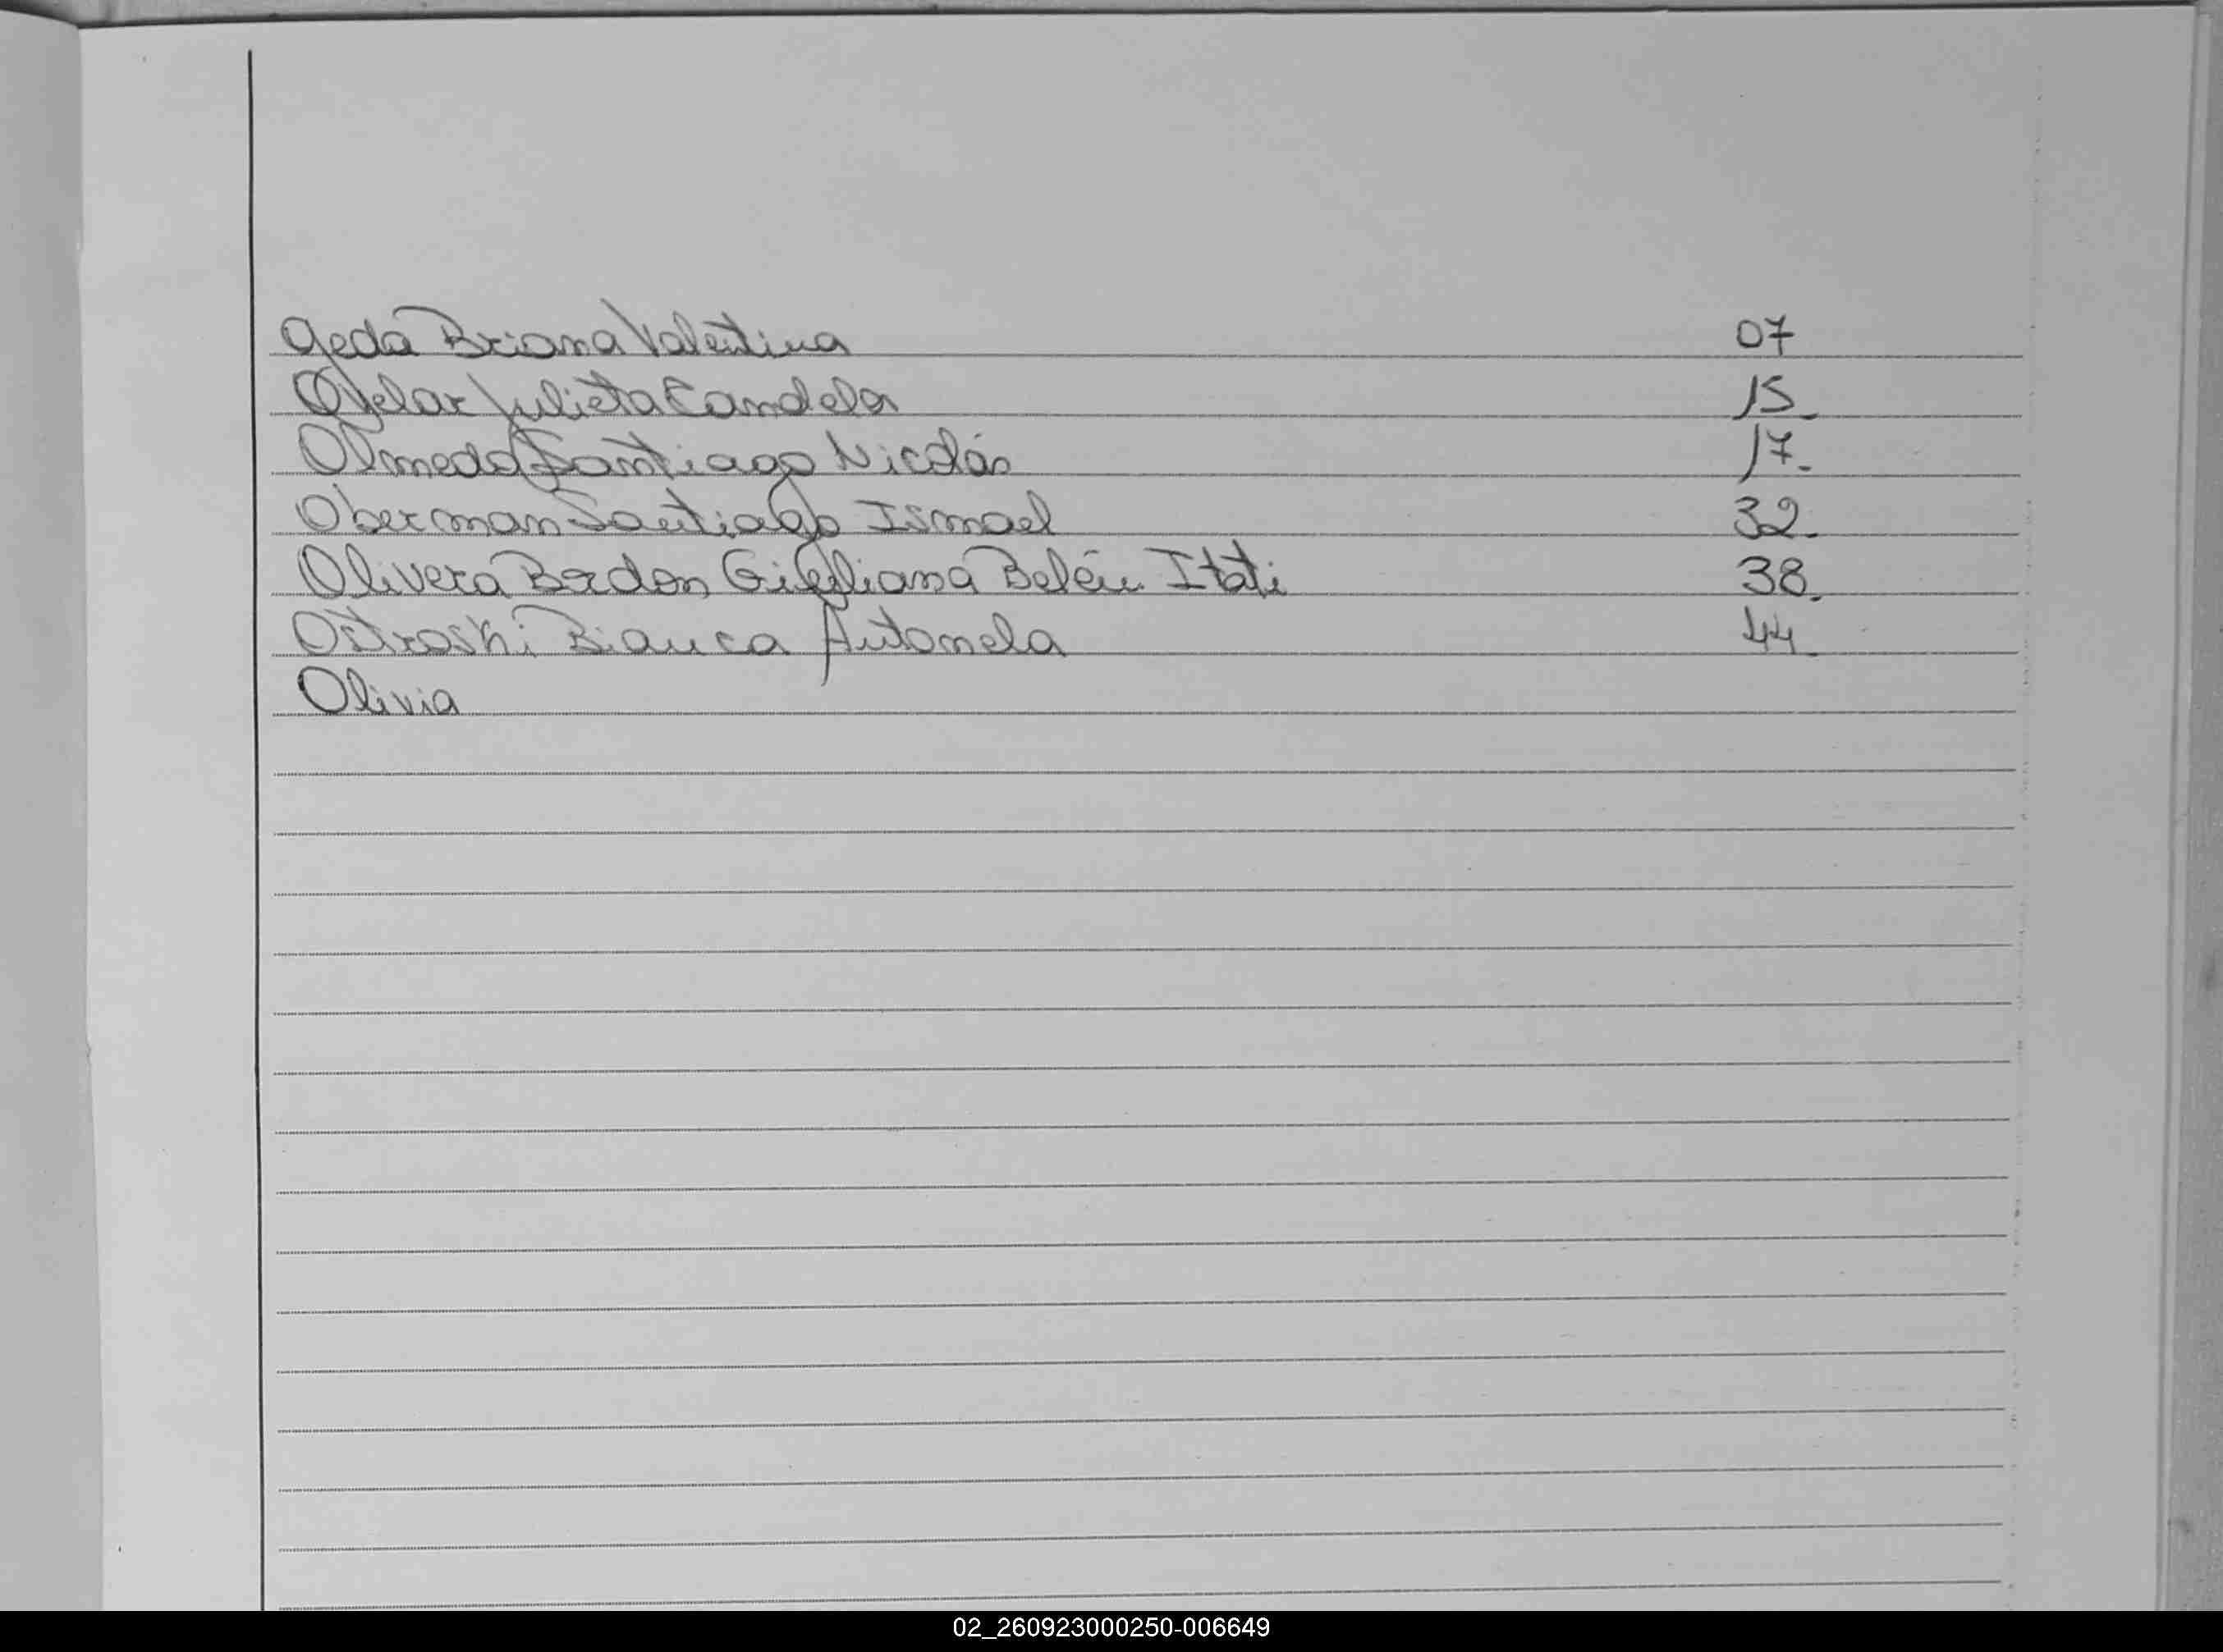 Ojeda Briana Valentina 07
Ojelar Julieta Candela 15
Olmedo Santiago Nicolás 17.
Oberman Santiago Ismael 32.
Olivera Bordon Belén Itati 38.
Ostroski Bianca Antonela 44
Olivia
02_260923000250-006649